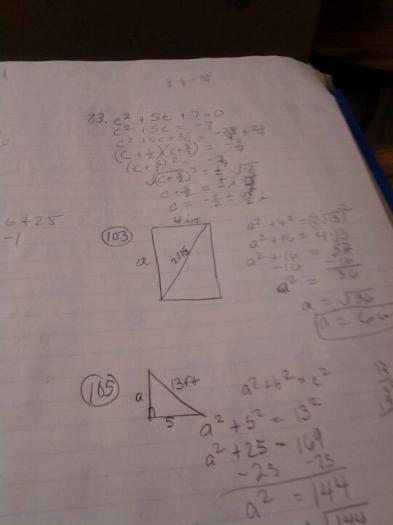 83. c² + 5c + 7 = 0
c² + 5c = -7
(c + 5/2)(c + 5/2) = -3/4
(c + 5/2)² = -3/4
c + 5/2 = ±
c = -5/2 ±
6 + 25
-1
103
4in
a
2√13
a² + 4² = (2√13)²
a² + 16 = 4·13
a² + 16 = 52
-16
a² = 36
a = √36
a = 6in
105
a
13ft
5
a² + b² = c²
a² + 5² = 13²
a² + 25 = 169
-25 -25
a² = 144
√144